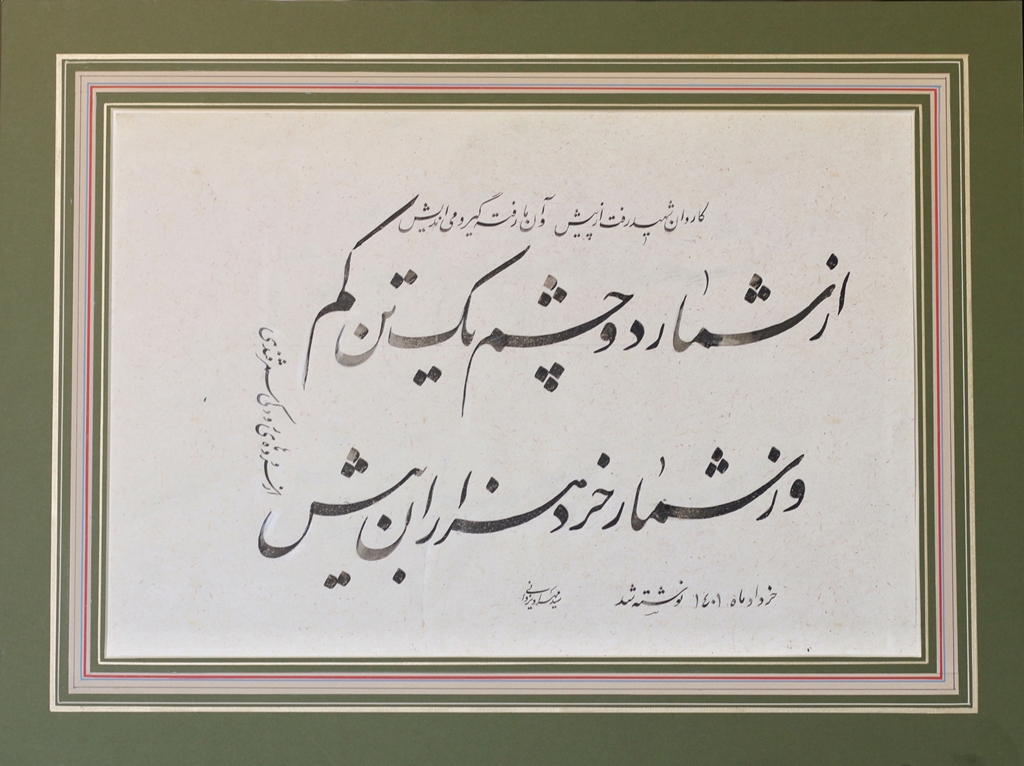 کاروان شهید رفت از پیش وآن ما رفته گیر و می‌اندیش
از شمار دو چشم یک تن کم
وز شمار خرد هزاران بیش
از سروده‌های رودکی سمرقندی
خرداد ماه ۱۴۰۱ نوشته شد